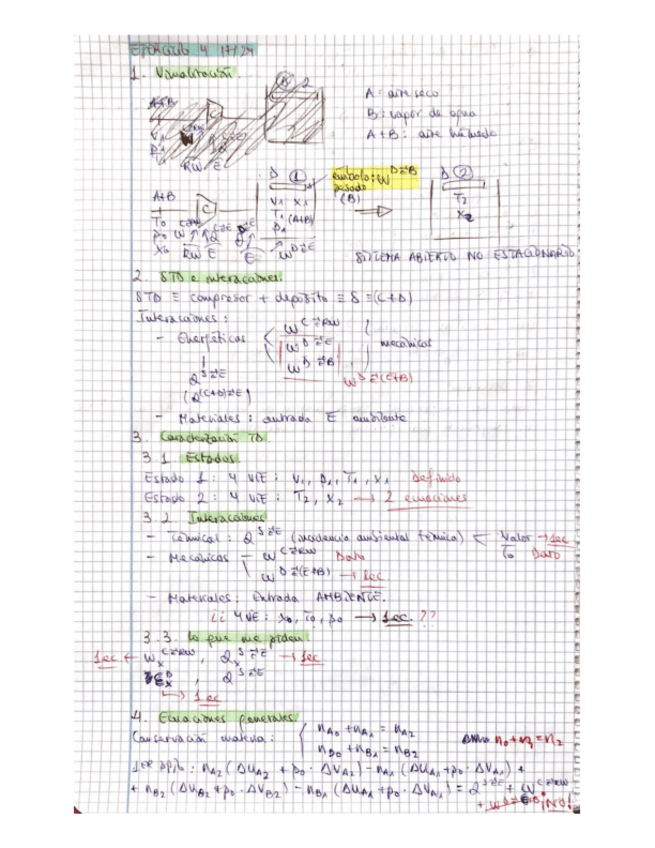 EJERCICIO 4 17/24
1. Visualización.
A = aire seco
B: vapor de agua
A+B: aire húmedo
A+B
émbolo: W^D⇄B
pesado (B)
A+B
C
D ①
V1 X1
T1 (A+B)
P1
W^D⇄E
D ②
T2
X2
T0
P0
X0
RW E
SISTEMA ABIERTO NO ESTACIONARIO
2. STD e interacciones.
STD ≡ compresor + depósito ≡ S ≡ (C+D)
Interacciones:
- Energéticas
W^C⇄RW
W^D⇄E
W^D⇄B
mecánicas
W^D⇄(E+B)
Q^S⇄E
(Q^(C+D)⇄E)
- Materiales: entrada E ambiente
3. Caracterización TD
3.1. Estados
Estado 1: 4 VIE: V1, P1, T1, X1 Definido
Estado 2: 4 VIE: T2, X2 → 2 ecuaciones
3.2. Interacciones
- Térmicas: Q^S⇄E (incidencia ambiental térmica) < Valor → 1ec
T0 Dato
- Mecánicas W^C⇄RW Dato
W^D⇄(E+B) → 1ec
- Materiales: Entrada AMBIENTE.
¿¿ 4VE: X0, T0, P0 → 1ec. ??
3.3. Lo que me piden
1ec ← Wx^C⇄RW, Qx^S⇄E → 1ec
Q^S⇄E
→ 1ec
4. Ecuaciones generales
Conservación materia: { nA0 + nA1 = nA2
nB0 + nB1 = nB2
n0 + n1 = n2
1ER ppio: nA2 (ΔUA2 + P0 · ΔVA2) - nA1 (ΔUA1 + P0 · ΔVA1) +
+ nB2 (ΔUB2 + P0 · ΔVB2) - nB1 (ΔUA1 + P0 · ΔVA1) = Q^S⇄E + W^C⇄RW
¡NO!